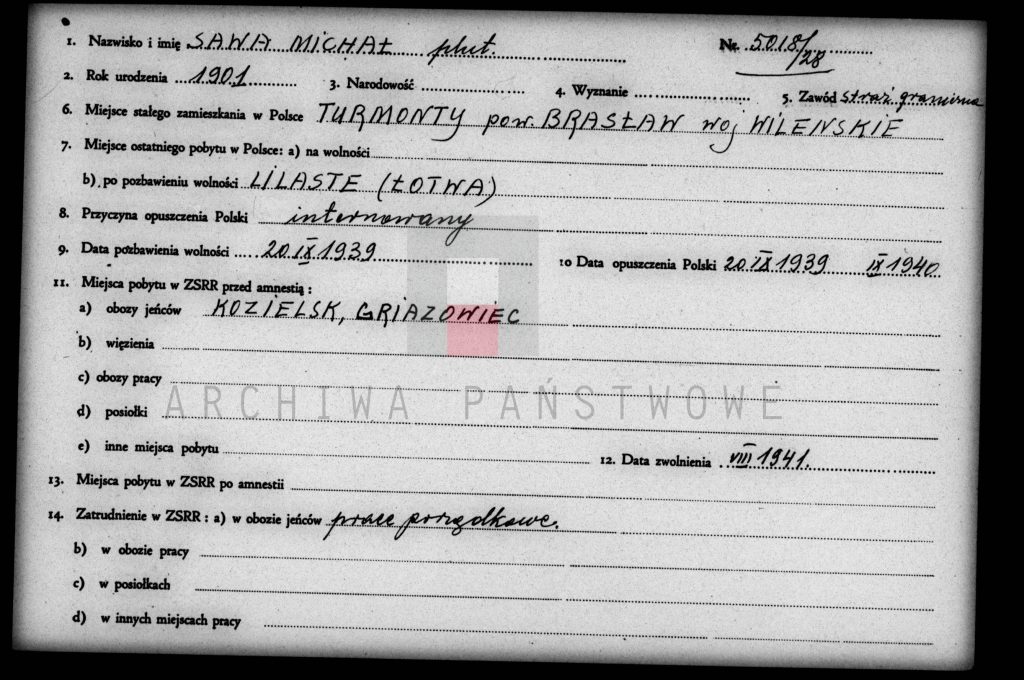 1. Nazwisko i imię SAWA MICHAŁ plut. Nr. 5018/28
2. Rok urodzenia 1901 3. Narodowość 4. Wyznanie 5. Zawód straż graniczna
6. Miejsce stałego zamieszkania w Polsce TURMONTY pow. BRASŁAW woj WILEŃSKIE
7. Miejsce ostatniego pobytu w Polsce: a) na wolności
b) po pozbawieniu wolności LILASTE (ŁOTWA)
8. Przyczyna opuszczenia Polski internowany
9. Data pozbawienia wolności 20 IX 1939 10 Data opuszczenia Polski 20 IX 1939 IX 1940
11. Miejsca pobytu w ZSRR przed amnestią:
a) obozy jeńców KOZIELSK, GRIAZOWIEC
b) więzienia
c) obozy pracy
ARCHIWA PAŃSTWOWE
d) posiołki
e) inne miejsca pobytu 12. Data zwolnienia VIII 1941.
13. Miejsca pobytu w ZSRR po amnestii
14. Zatrudnienie w ZSRR: a) w obozie jeńców prace porządkowe.
b) w obozie pracy
c) w posiołkach
d) w innych miejscach pracy